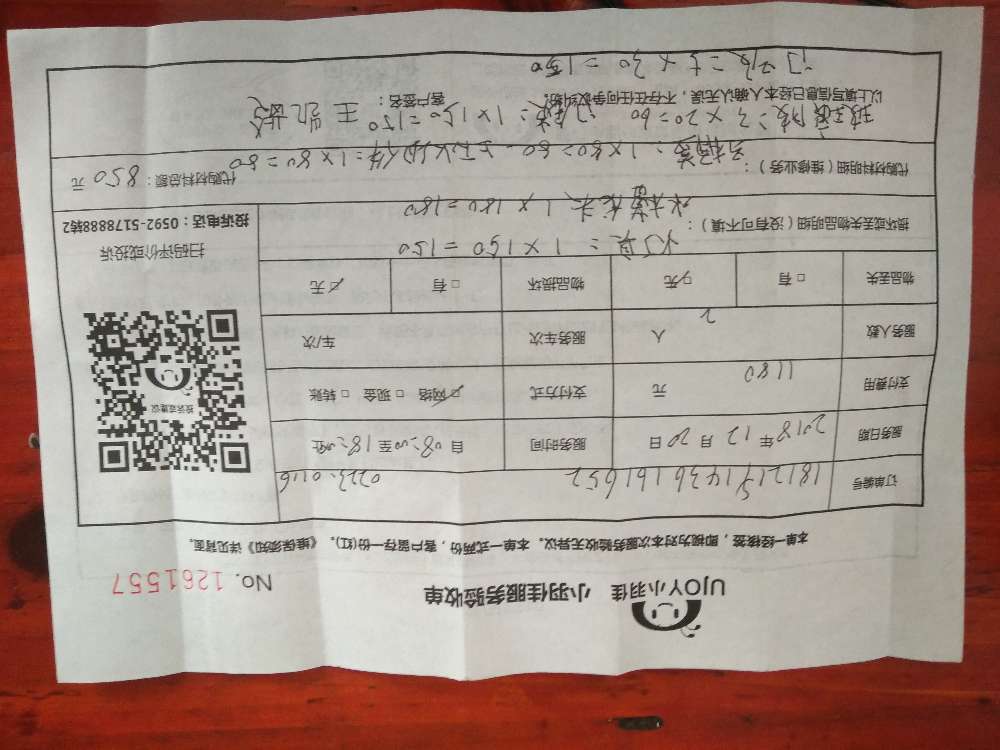 UJOY小羽佳 小羽佳服务验收单 No. 1261557
本单一经核签，即视为对本次服务验收无异议。本单一式两份，客户留存一份(红)。《维保须知》详见背面。
订单编号 1812171436161652 0223.0116
服务日期 2018年12月20日 服务时间 自08:00至18:00止
支付费用 1180 元 支付方式 ☑网络 □现金 □转账
服务人数 2 人 服务车次 车/次
物品丢失 □有 ☑无 物品损坏 □有 ☑无
投诉或建议
扫码评价或投诉
投诉电话：0592-5178888转2
损坏或丢失物品明细（没有可不填）：
灯具=1×150=150
水槽龙头 1×180=180
代购材料明细（维修业务）： 代购材料总额：850元
1×80=80 1×80=80
玻璃胶=3×20=60 门锁=1×150=150
以上填写信息已经本人确认无误，不存在任何争议纠纷。 客户签名：王
=5×30=150